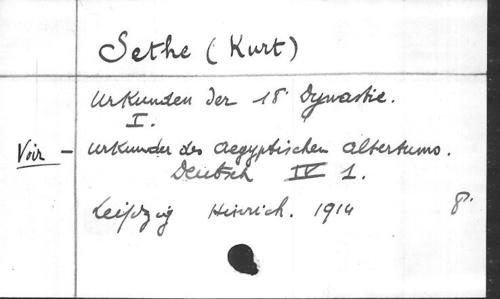 Sethe (Kurt)
Urkunden der 18 Dynastie.
I.
Voir - Urkunden des aegyptischen altertums.
Deutsch IV 1.
Leipzig Hinrich. 1914 8°